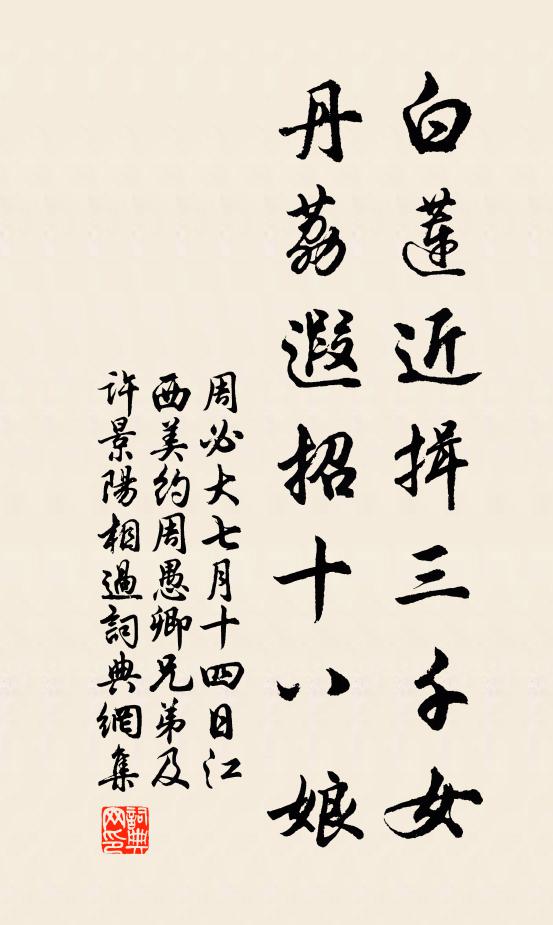 白蓮近揖三千女
丹荔遐招十八娘
周必大七月十四日江
西美約周愚卿兄弟及
許景陽相過詞典網集
詞典
网印